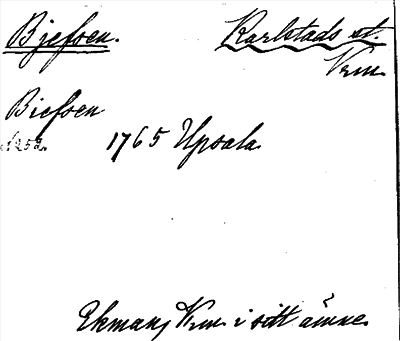 Bjefsen. Karlstads st.
Vrm.
Biefsen
s. 252. 1765 Upsala
Ekman, Vrm. i sitt ämne